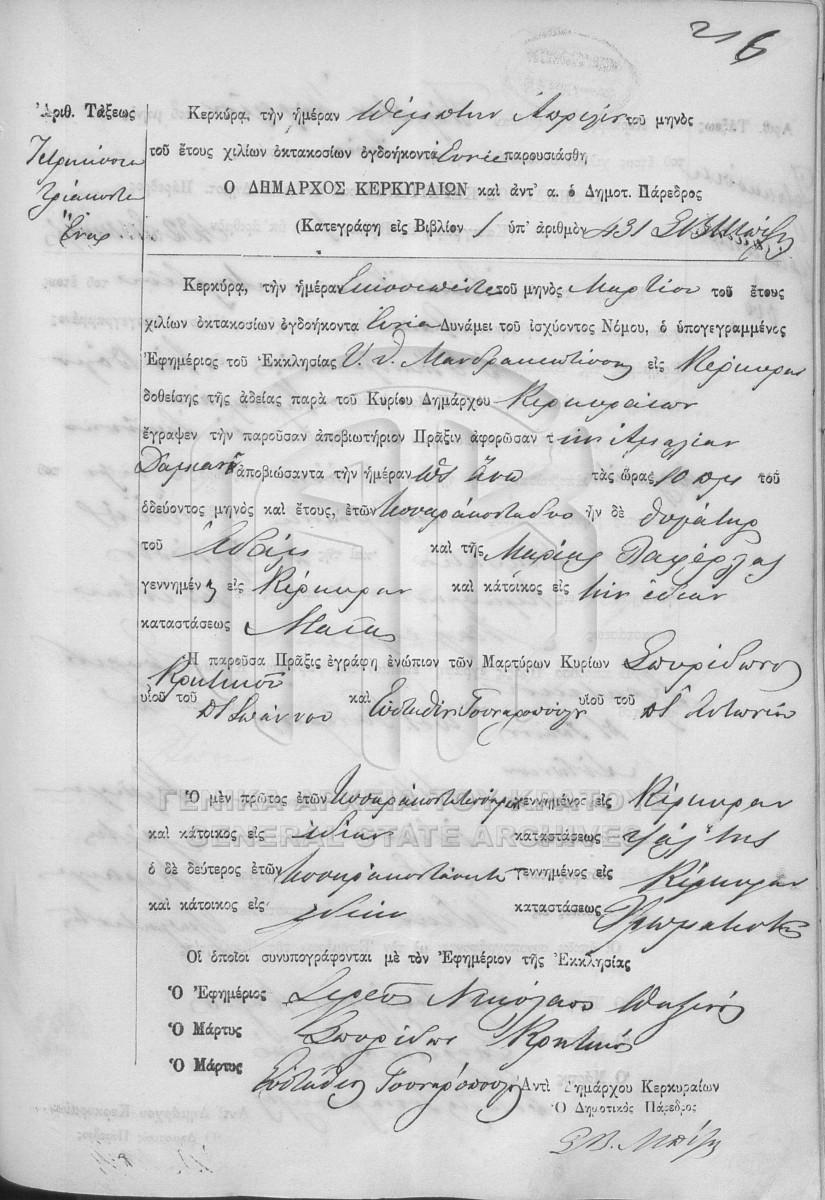 216
Ἀριθ. Τάξεως
Τετρακόσια
τριάκοντα
ἕναρ
Κερκύρα, τὴν ἡμέραν πέμπτην Ἀπριλίου τοῦ μηνὸς
τοῦ ἔτους χιλίων ὀκτακοσίων ὀγδοήκοντα Ἐννέα παρουσιάσθη
Ο ΔΗΜΑΡΧΟΣ ΚΕΡΚΥΡΑΙΩΝ καὶ ἀντ' α. ὁ Δημοτ. Πάρεδρος
(Κατεγράφη εἰς Βιβλίον 1 ὑπ' ἀριθμὸν 431
Κερκύρα, τὴν ἡμέραν Εἰκοσιπέντε τοῦ μηνὸς Μαρτίου τοῦ ἔτους
χιλίων ὀκτακοσίων ὀγδοήκοντα Ἐννέα Δυνάμει τοῦ ἰσχύοντος Νόμου, ὁ ὑπογεγραμμένος
Ἐφημέριος τοῦ Ἐκκλησίας Υ. Θ. Μανδρακιωτίσσης εἰς Κέρκυραν
δοθείσης τῆς ἀδείας παρὰ τοῦ Κυρίου Δημάρχου Κερκυραίων
ἔγραψεν τὴν παροῦσαν ἀποβιωτήριον Πρᾶξιν ἀφορῶσαν τὴν Ἀμαλίαν
Δαμιανοῦ ἀποβιώσαντα τὴν ἡμέραν ὡς ἄνω τὰς ὥρας 10 πμ τοῦ
ὁδεύοντος μηνὸς καὶ ἔτους, ἐτῶν τεσσαράκονταδύο ἦν δὲ θυγάτηρ
τοῦ καὶ τῆς Μαρίας
γεννημένη εἰς Κέρκυραν καὶ κάτοικος εἰς τὴν ἰδίαν
καταστάσεως
Ἡ παροῦσα Πρᾶξις ἐγράφη ἐνώπιον τῶν Μαρτύρων Κυρίων Σπυρίδωνος
Κρητικοῦ
υἱοῦ τοῦ Ἰωάννου καὶ Εὐσταθίου Τσιναροπούλου υἱοῦ τοῦ Ἀντωνίου
Ὁ μὲν πρῶτος ἐτῶν γεννημένος εἰς Κέρκυραν
καὶ κάτοικος εἰς ἰδίαν καταστάσεως ψάλτης
ὁ δὲ δεύτερος ἐτῶν γεννημένος εἰς Κέρκυραν
καὶ κάτοικος εἰς ἰδίαν καταστάσεως
Οἱ ὁποῖοι συνυπογράφονται μὲ τὸν Ἐφημέριον τῆς Ἐκκλησίας
Ὁ Ἐφημέριος Ἱερεὺς Νικόλαος
Ὁ Μάρτυς Σπυρίδων Κρητικός
Ὁ Μάρτυς Εὐστάθιος
Ἀντὶ Δημάρχου Κερκυραίων
Ὁ Δημοτικὸς Πάρεδρος
ΓΕΝΙΚΑ ΑΡΧΕΙΑ ΤΟΥ ΚΡΑΤΟΥΣ
GENERAL STATE ARCHIVES